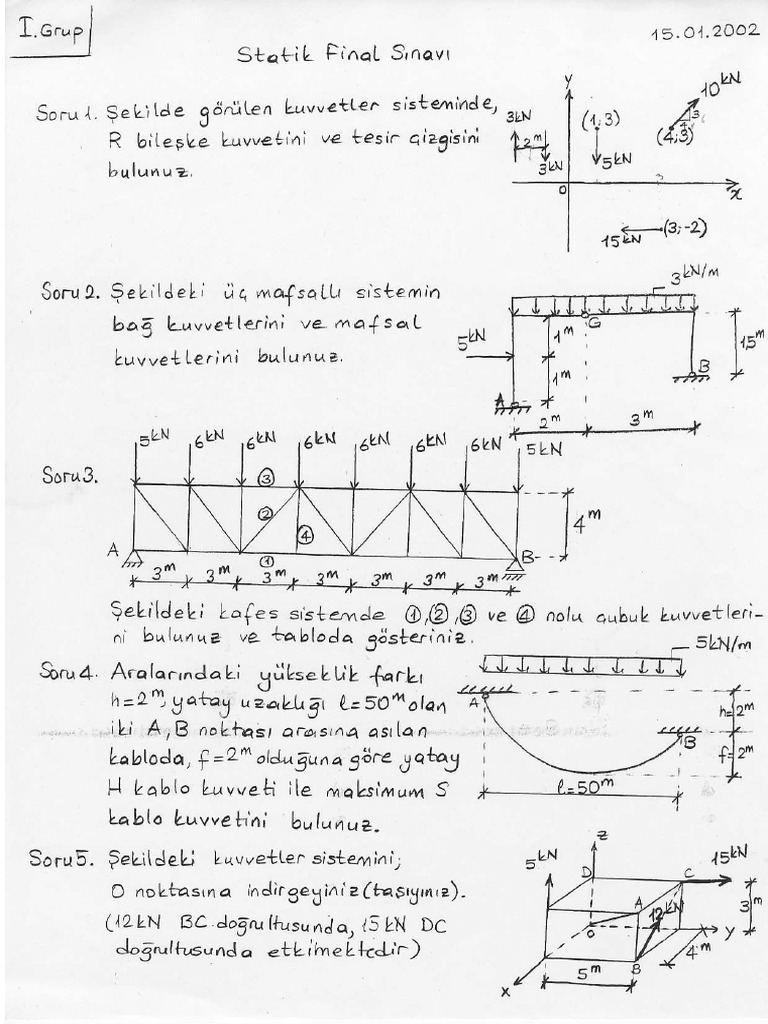 I. Grup
15.01.2002
Statik Final Sınavı
Soru 1. Şekilde görülen kuvvetler sisteminde,
R bileşke kuvvetini ve tesir çizgisini
bulunuz.
y
10 kN
3
4
(4;3)
(1;3)
5 kN
3 kN
2 m
3 kN
O
x
15 kN
(3;-2)
Soru 2. Şekildeki üç mafsallı sistemin
bağ kuvvetlerini ve mafsal
kuvvetlerini bulunuz.
3 kN/m
G
5 kN
1 m
1 m
1,5 m
B
A
2 m
3 m
Soru 3.
5 kN
6 kN
6 kN
6 kN
6 kN
6 kN
6 kN
5 kN
③
②
④
①
4 m
A
B
3 m
3 m
3 m
3 m
3 m
3 m
3 m
Şekildeki kafes sistemde ①,②,③ ve ④ nolu çubuk kuvvetleri-
ni bulunuz ve tabloda gösteriniz.
Soru 4. Aralarındaki yükseklik farkı
h=2m, yatay uzaklığı l=50m olan
iki A, B noktası arasına asılan
kabloda, f=2m olduğuna göre yatay
H kablo kuvveti ile maksimum S
kablo kuvvetini bulunuz.
5 kN/m
A
h=2m
B
f=2m
l=50m
Soru 5. Şekildeki kuvvetler sistemini;
O noktasına indirgeyiniz (taşıyınız).
(12 kN BC doğrultusunda, 15 kN DC
doğrultusunda etkimektedir)
z
5 kN
D
C
15 kN
A
12 kN
3 m
O
y
4 m
B
5 m
x